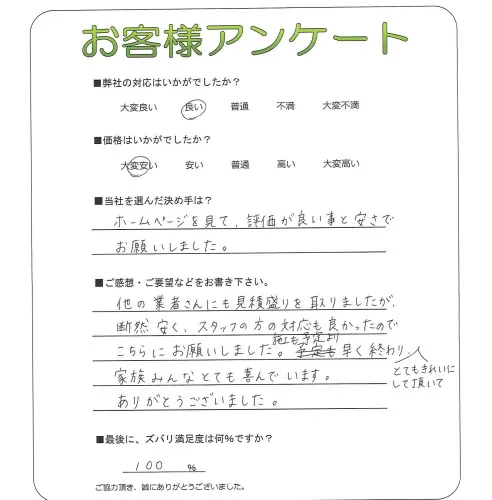 お客様アンケート
■弊社の対応はいかがでしたか？
大変良い 良い 普通 不満 大変不満
■価格はいかがでしたか？
大変安い 安い 普通 高い 大変高い
■当社を選んだ決め手は？
ホームページを見て、評価が良い事と安さで
お願いしました。
■ご感想・ご要望などをお書き下さい。
他の業者さんにも見積盛りを取りましたが、
断然安く、スタッフの方の対応も良かったので
こちらにお願いしました。予定も早く終わり、
とてもきれいに
して頂いて
家族みんなとても喜んでいます。
ありがとうございました。
■最後に、ズバリ満足度は何％ですか？
100 %
ご協力頂き、誠にありがとうございました。